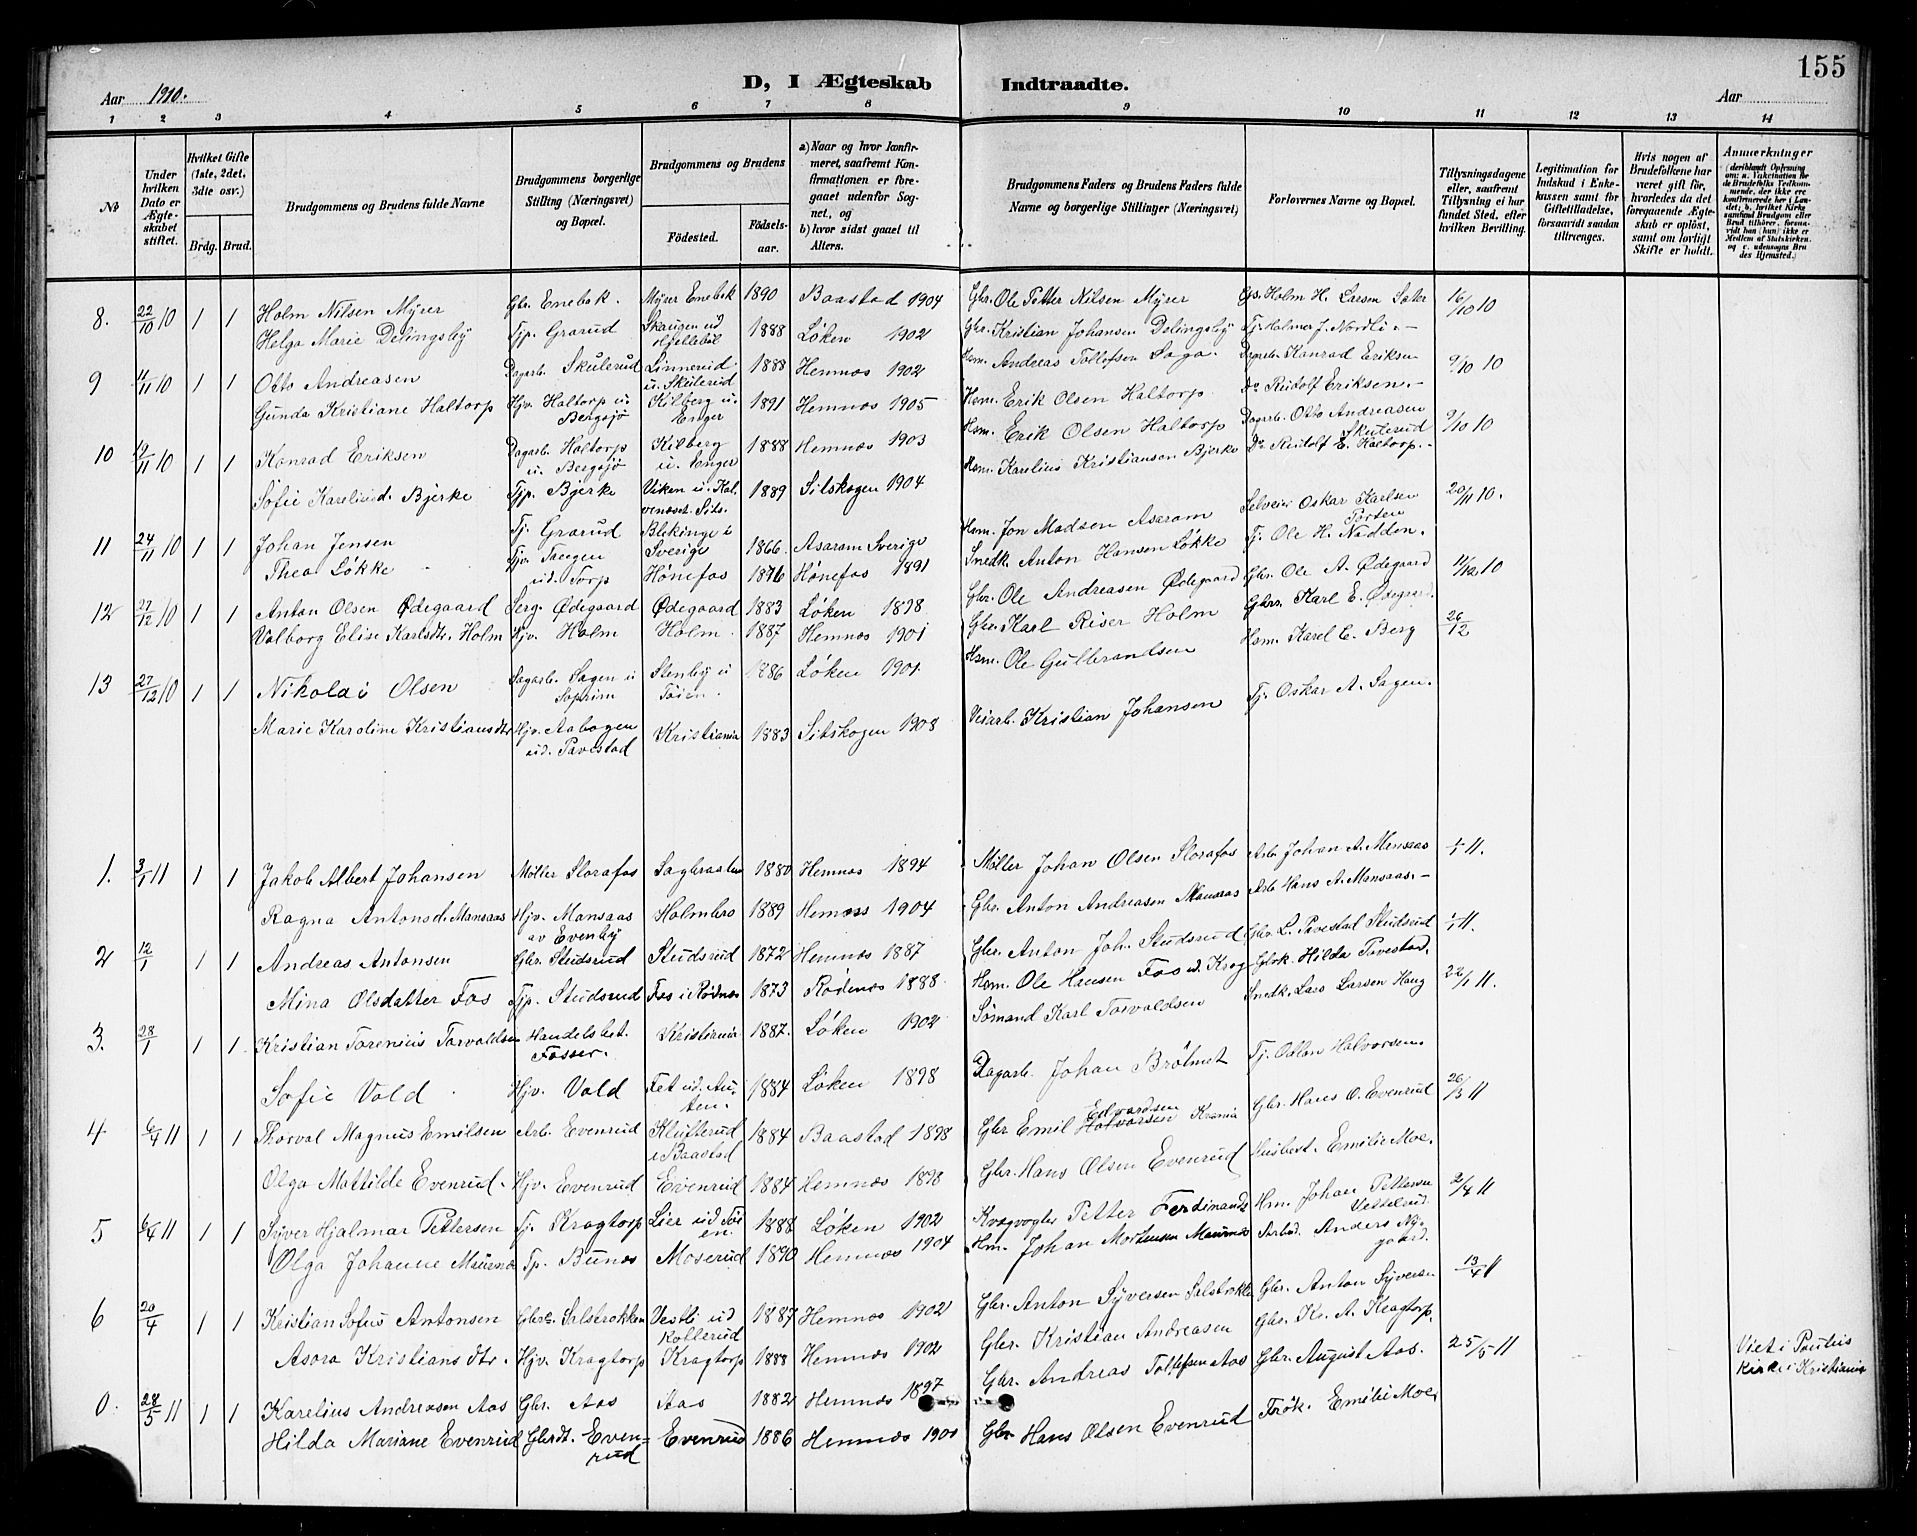 155
D, I Ægteskab Indtraadte.
Aar 1910. Aar
1 2 3 4 5 6 7 8 9 10 11 12 13 14
No
Under hvilken Dato er Ægteskabet stiftet.
Hvilket Gifte (1ste, 2det, 3die osv.)
Brdg. Brud.
Brudgommens og Brudens fulde Navne
Brudgommens borgerlige Stilling (Næringsvei) og Bopæl.
Brudgommens og Brudens
Fødested. Fødselsaar.
a) Naar og hvor konfirmeret, saafremt Konfirmationen er foregaaet udenfor Sognet, og
b) hvor sidst gaaet til Alters.
Brudgommens Faders og Brudens Faders fulde Navne og borgerlige Stillinger (Næringsvei)
Forlovernes Navne og Bopæl.
Tillysningsdagene eller, saafremt Tillysning ei har fundet Sted, efter hvilken Bevilling.
Legitimation for Indskud i Enkekassen samt for Giftetilladelse, forsaavidt saadan tiltrænges.
Hvis nogen af Brudefolkene har været gift før, hvorledes da det foregaaende Ægteskab er opløst, samt om lovligt Skifte er holdt.
Anmerkninger
(deriblandt Oplysning om: a. Vakcination for de Brudefolks Vedkommende, der ikke ere konfirmerede her i Landet; b. hvilket Kirkesamfund Brudgom eller Brud tilhører, forsaavidt han (hun) ikke er Medlem af Statskirken. og c. udensogns Brudes Hjemsted.)
8. 22/10 10 1 1 Holm Nilsen Myrer Gbr. Enebak. Myrer Enebak 1890 Baastad 1904 Gbr. Ole Petter Nilsen Myrer Gs. Holm H. Larsen Sater 16/10 10
Helga Marie Delingsby Tjp. Grarud Skaugen ud 1888 Løken 1902 Gbr. Kristian Johansen Delingsby Tj. Holmer J. Nordli
9 11/11 10 1 1 Otto Andreasen Dagarb. Skulerud Linnerud u. Skulerud 1888 Hemnes 1902 Hsm. Andreas Tollefsen Saga. Dagarb. Konrad Eriksen 9/10 10
Gunda Kristiane Haltorp Hjv. Haltorp u. Bergsjø Kilberg u. Enger 1891 Hemnes 1905 Hsm. Erik Olsen Haltorp Do Rudolf Eriksen
10 19/11 10 1 1 Konrad Eriksen Dagarb. Haltorp u. Bergsjø Kilberg u. Enger 1888 Hemnes 1903 Hsm. Erik Olsen Haltorp Dagarb. Otto Andreasen Skulerud 9/10 10
Sofie Kareliusd. Bjerke Tjp. Bjerke Viken u. Kal. 1889 Sitskogen 1904 Hsm. Karelius Kristiansen Bjerke Do Rudolf E. Haltorp
11 24/11 10 1 1 Johan Jensen Tj. Grarud Blekinge i Sverige 1866 Asarum Sverige Hsm. Jon Madsen Asarum Selveier Oskar Karlsen 20/11 10.
Thea Løkke Hjv. ud. Torp Hønefos 1876 Hønefos 1891 Snedk. Anton Hansen Løkke Tj. Ole H. Nadden.
12 27/12 10 1 1 Anton Olsen Ødegaard Serg. Ødegaard Ødegaard 1883 Løken 1898 Gbr. Ole Andreasen Ødegaard Gbr. Ole A. Ødegaard 11/12 10
Valborg Elise Karlsdtr. Holm Hjv. Holm Holm 1887 Hemnes 1901 Gbr. Karl Riser Holm Gbrs. Karl E. Ødegaard.
13 27/12 10 1 1 Nikolai Olsen Sagarb. Sagen u Soprim Stenby u Tøien 1886 Løken 1901 Hsm. Ole Gulbrandsen Hsm. Karel E. Berg 26/12
Marie Karoline Kristiansdtr Hjv. Aabogen ud. Tavestad Kristiania 1883 Sitskogen 1908 Veiarb. Kristian Johansen Tj. Oskar A. Sagen.
1. 3/1 11 1 1 Jakob Albert Johansen Møller Slorafos Sagbraaten 1880 Hemnes 1894 Møller Johan Olsen Slorafos Arb. Johan A. Mansaas 1/1 11.
Ragna Antonsdr. Mansaas Hjv. Mansaas av Evenby Holmbro 1889 Hemnes 1904 Gbr. Anton Andreasen Mansaas Arb. Hans A. Mansaas
2 12/1 1 1 Andreas Antonsen Gbr. Studsrud Studsrud 1872 Hemnes 1887 Gbr. Anton Joh. Studsrud Gbr. L. Tavestad Studsrud 1/1 11.
Mina Olsdatter Fos Tjp. Studsrud Fos i Rødnes 1873 Rødenes 1888 Hsm. Ole Hansen Fos ud. Krog Gbk. Hilda Tavestad.
3. 28/1 1 1 Kristian Torenius Torvaldsen Handelsbet. Fosser. Kristiania 1887. Løken 1902 Sømand Karl Torvaldsen Snedk. Lars Larsen Haug 22/1 11.
Sofie Vold Hjv. Vold Fet ud. Auten. 1884 Løken 1898 Dagarb. Johan Brøtmet Tj. Odton Halvorsen.
4 6/4 11 1 1 Thorval Magnus Emilsen Arb. Evenrud Klufterud i Baastad 1884 Baastad 1898 Gbr Emil Edvardsen Krania Gbr. Hans O. Evenrud 26/3 11
Olga Mathilde Evenrud. Hjv. Evenrud Evenrud 1884 Hemnes 1898 Gbr. Hans Olsen Evenrud Husbest. Emilie Moe.
5 6/4 11 1 1 Syver Hjalmar Pettersen Tj. Kragtorp Lier ud Tøien. 1888 Løken 1902 Kvægvogter Petter Ferdinands Hm. Johan Pettersen Vestbrud. 2/4 11
Olga Johanne Murmo Tp. Bunes Moserud 1890 Hemnes 1904 Hm. Johan Mortensen Murmo Anders Nygaard.
6 20/4 1 1 Kristian Sofus Antonsen Gbrs. Selstrokken Vestli ud Kollerud 1887 Hemnes 1902 Gbr. Anton Syversen Selstrokke Gbr. Anton Syversen 13/4 11
Asora Kristiansdtr. Hjv. Kragtorp Kragtorp 1888 Hemnes 1902 Gbr. Kristian Andreasen Gbr. Kr. A. Kragtorp.
0. 28/5 11 1 1 Karelius Andreasen Aas Gbr. Aas Aas 1882 Hemnes 1897 Gbr. Andreas Tollefsen Aas Gbr. August Aas. 25/5 11 Viet i Paulus Kirke i Kristiania
Hilda Mariane Evenrud Gbrdt. Evenrud Evenrud 1886 Hemnes 1901 Gbr Hans Olsen Evenrud Frøk. Emilie Moe,